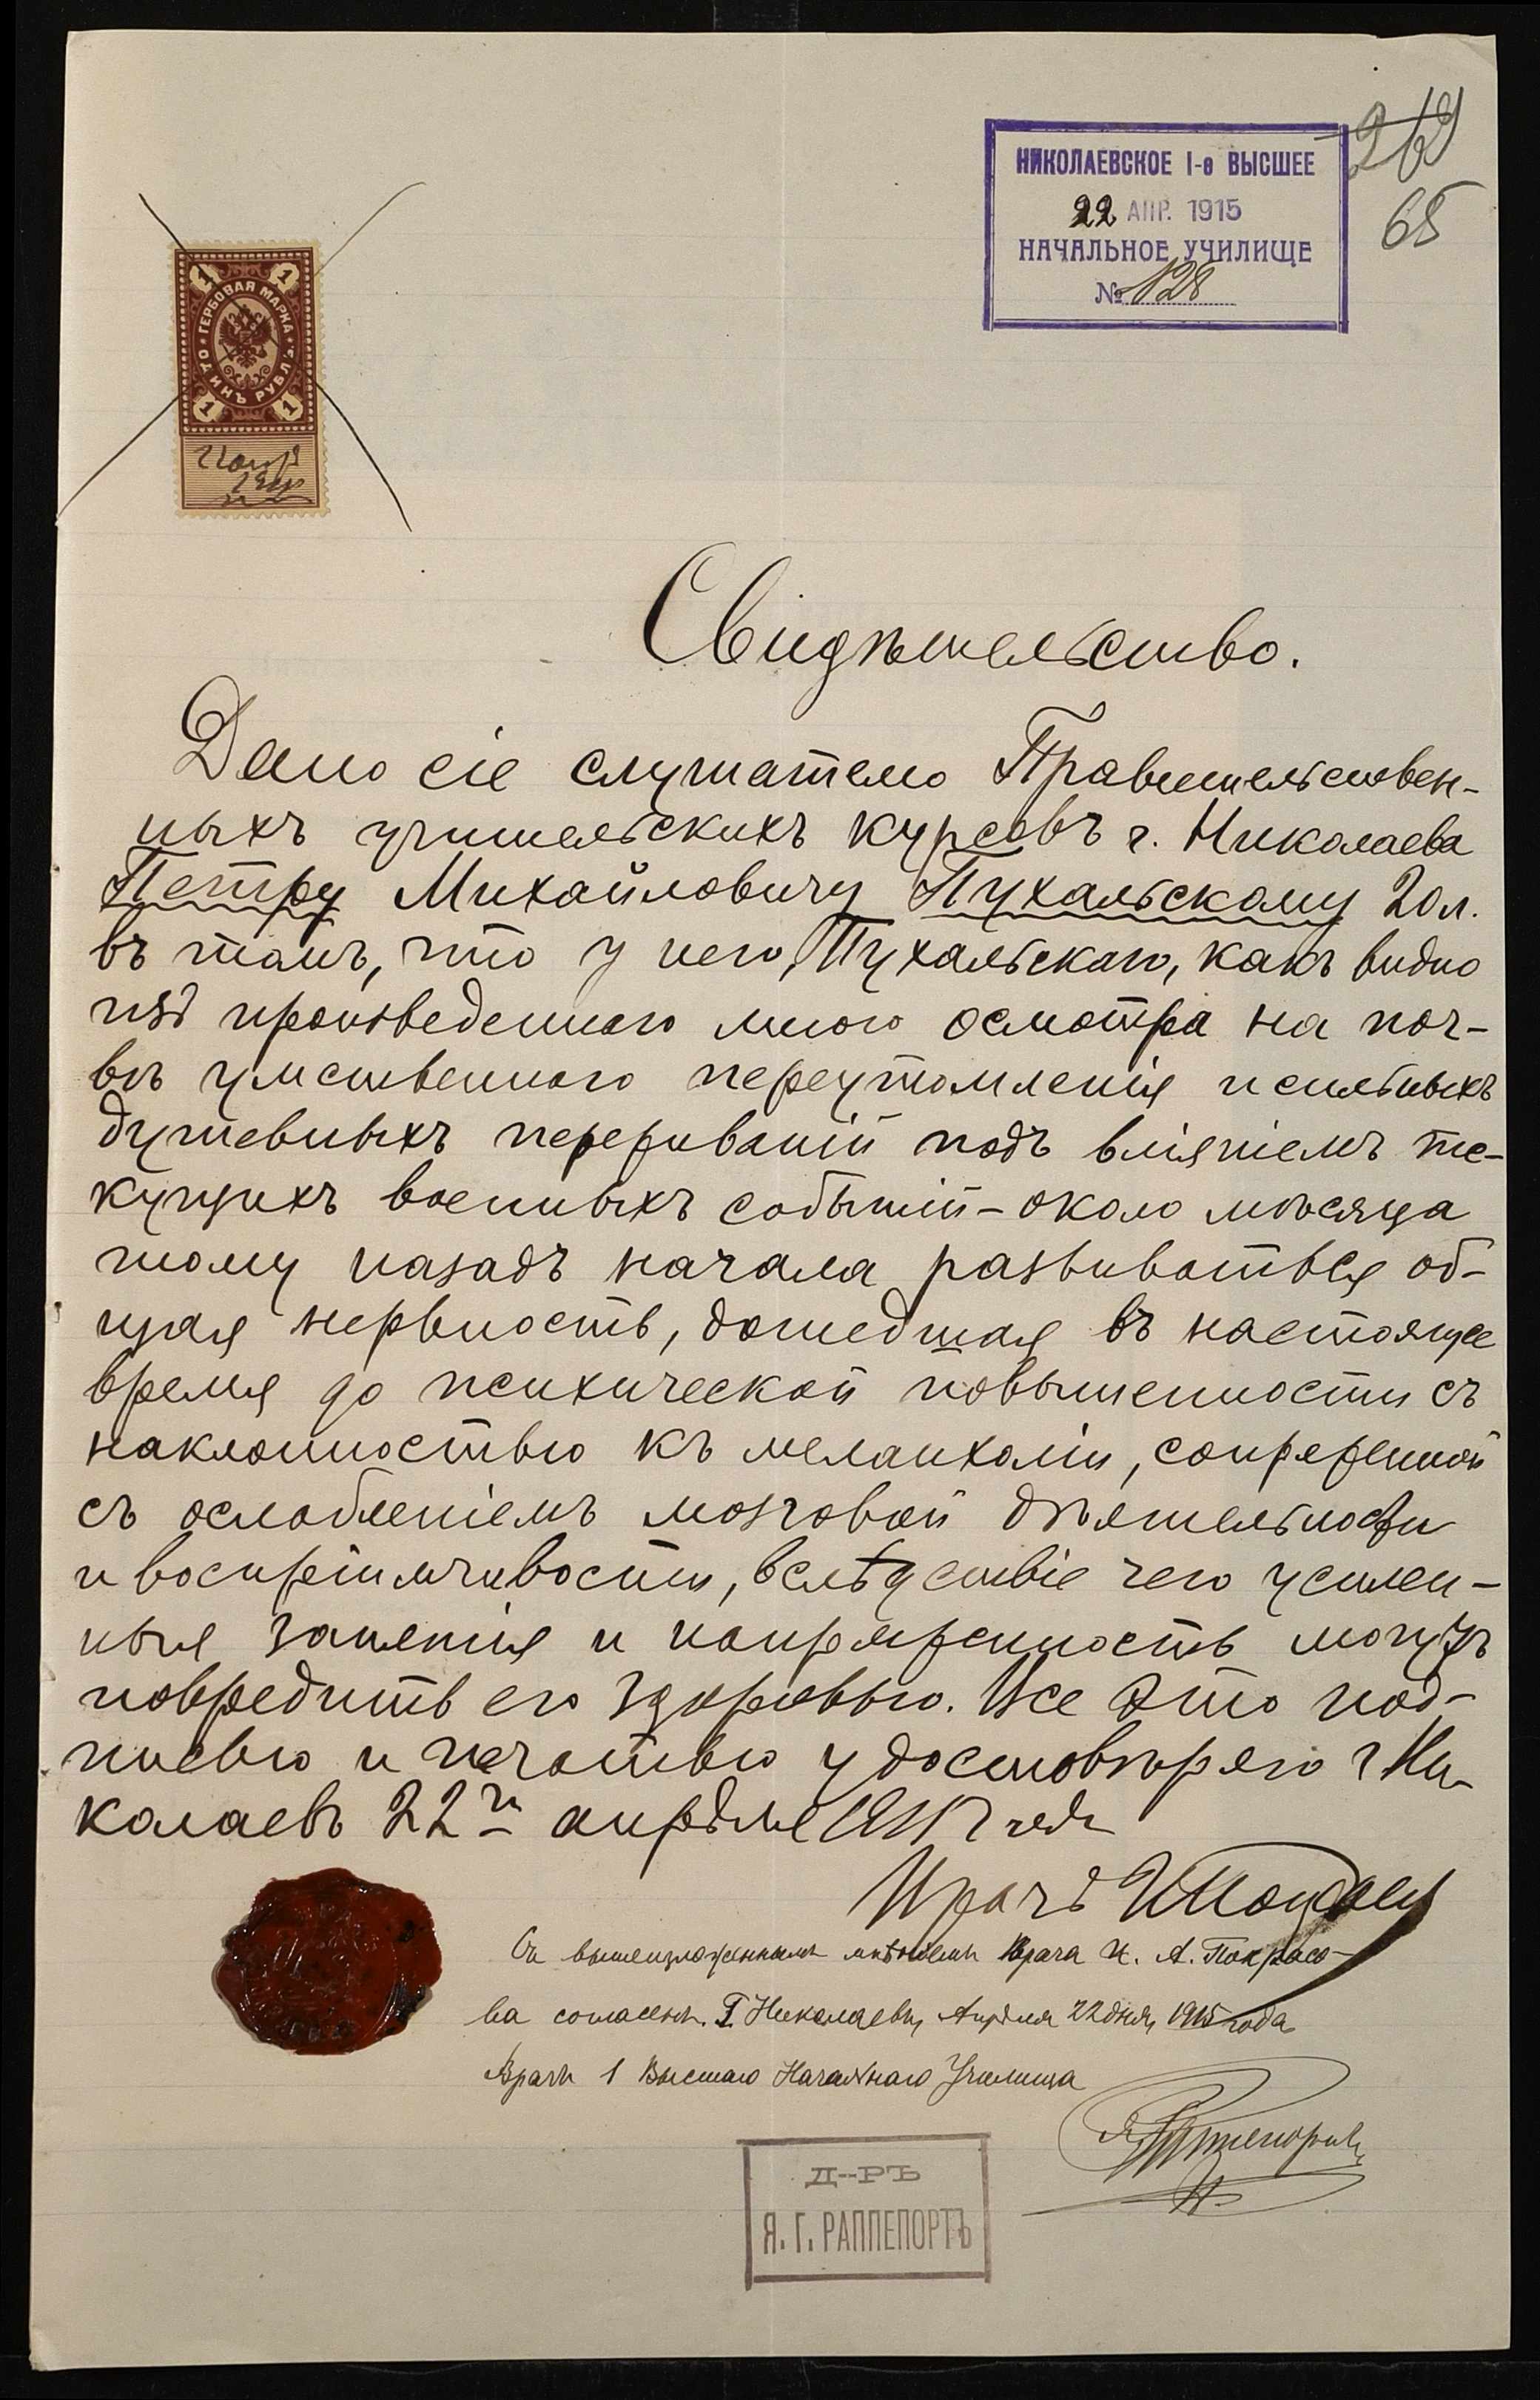 269
65
НИКОЛАЕВСКОЕ I-е ВЫСШЕЕ
22 АПР. 1915
НАЧАЛЬНОЕ УЧИЛИЩЕ
№ 128
1 1
ГЕРБОВАЯ МАРКА
ОДИНЪ РУБЛЬ
1 1
Свидѣтельство.
Дано сіе слушателю Правительствен-
ныхъ учительскихъ курсовъ г. Николаева
Петру Михайловичу Пухальскому 20 л.
въ томъ, что у него, Пухальскаго, какъ видно
изъ произведеннаго мною осмотра на поч-
вѣ умственнаго переутомленія и сильныхъ
душевныхъ переживаній подъ вліяніемъ те-
кущихъ военныхъ событій - около мѣсяца
тому назадъ начала развиваться об-
щая нервность, дошедшая въ настоящее
время до психической повышенности съ
наклонностью къ меланхоліи, сопряженной
съ ослабленіемъ мозговой дѣятельности
и воспріимчивости, вслѣдствіе чего усилен-
ныя занятія и напряженность могутъ
повредить его здоровью. Все это под-
писью и печатью удостовѣряю г Ни-
колаевъ 22го апрѣля 1915 года
Врачъ
Съ вышеизложеннымъ мнѣніемъ Врача И. А. Покрасо-
ва согласенъ. Г. Николаевъ, Апрѣля 22 дня, 1915 года
Врачъ 1 Высшаго Начальнаго Училища
Я. Раппепортъ
Д-РЪ
Я. Г. РАППЕПОРТЪ